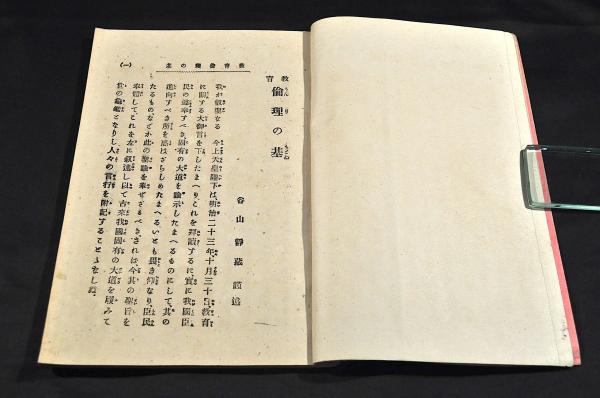 教育倫理の基
(一)
教育
倫理の基
谷山靜藏 謹述
我が叡聖なる 今上天皇陛下は、明治二十三年十月三十日、教育
に關する大御言を下したまへりこれを拜讀するに、實に我國臣
民の遵率すべき、固有の大道を諭示したまへるものにして、其の
趨向すべき所を惑はざらしめたまへる、いとも畏き御旨なり、臣民
たるものなどか此の聖諭を奉ぜざるべき、されば今其の聖旨を
奉體してこれを左に叙述し以て古來我國固有の大道を履みて
世の龜鑑となりし人々の言行を附記することゝなしぬ、